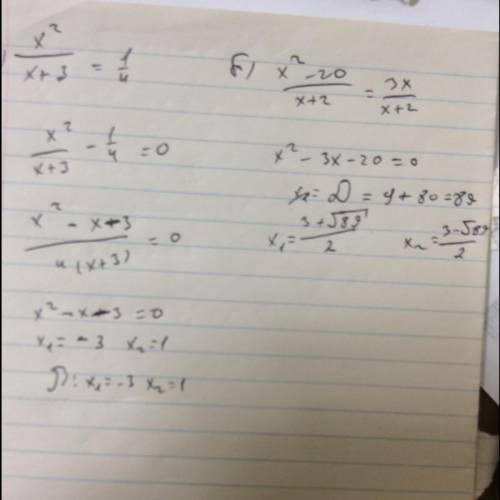 ) x²/(x+3) = 1/4
x²/(x+3) - 1/4 = 0
(x² - x - 3)/(4(x+3)) = 0
x² - x - 3 = 0
x₁ = -3 x₂ = 1
x₁ = -3 x₂ = 1
б) (x² - 20)/(x+2) = 3x/(x+2)
x² - 3x - 20 = 0
D = 9 + 80 = 89
x₁ = (3+√89)/2 x₂ = (3-√89)/2